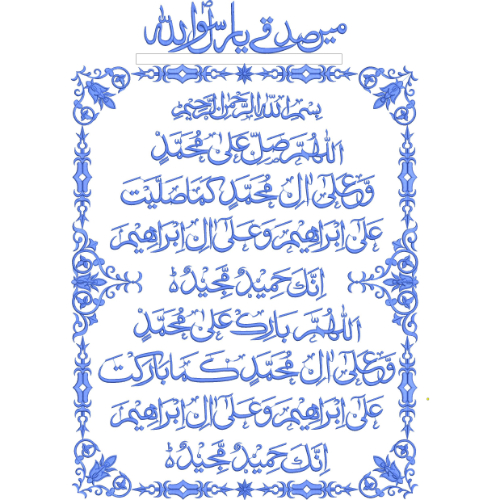 میں صدقے یا رسول اللہ
بسم الله الرحمن الرحيم
اَللّٰهُمَّ صَلِّ عَلٰى مُحَمَّدٍ
وَّعَلٰٓى اٰلِ مُحَمَّدٍ كَمَا صَلَّيْتَ
عَلٰٓى اِبْرَاهِيْمَ وَعَلٰٓى اٰلِ اِبْرَاهِيْمَ
اِنَّكَ حَمِيْدٌ مَّجِيْدٌ
اَللّٰهُمَّ بَارِكْ عَلٰى مُحَمَّدٍ
وَّعَلٰٓى اٰلِ مُحَمَّدٍ كَمَا بَارَكْتَ
عَلٰٓى اِبْرَاهِيْمَ وَعَلٰٓى اٰلِ اِبْرَاهِيْمَ
اِنَّكَ حَمِيْدٌ مَّجِيْدٌ